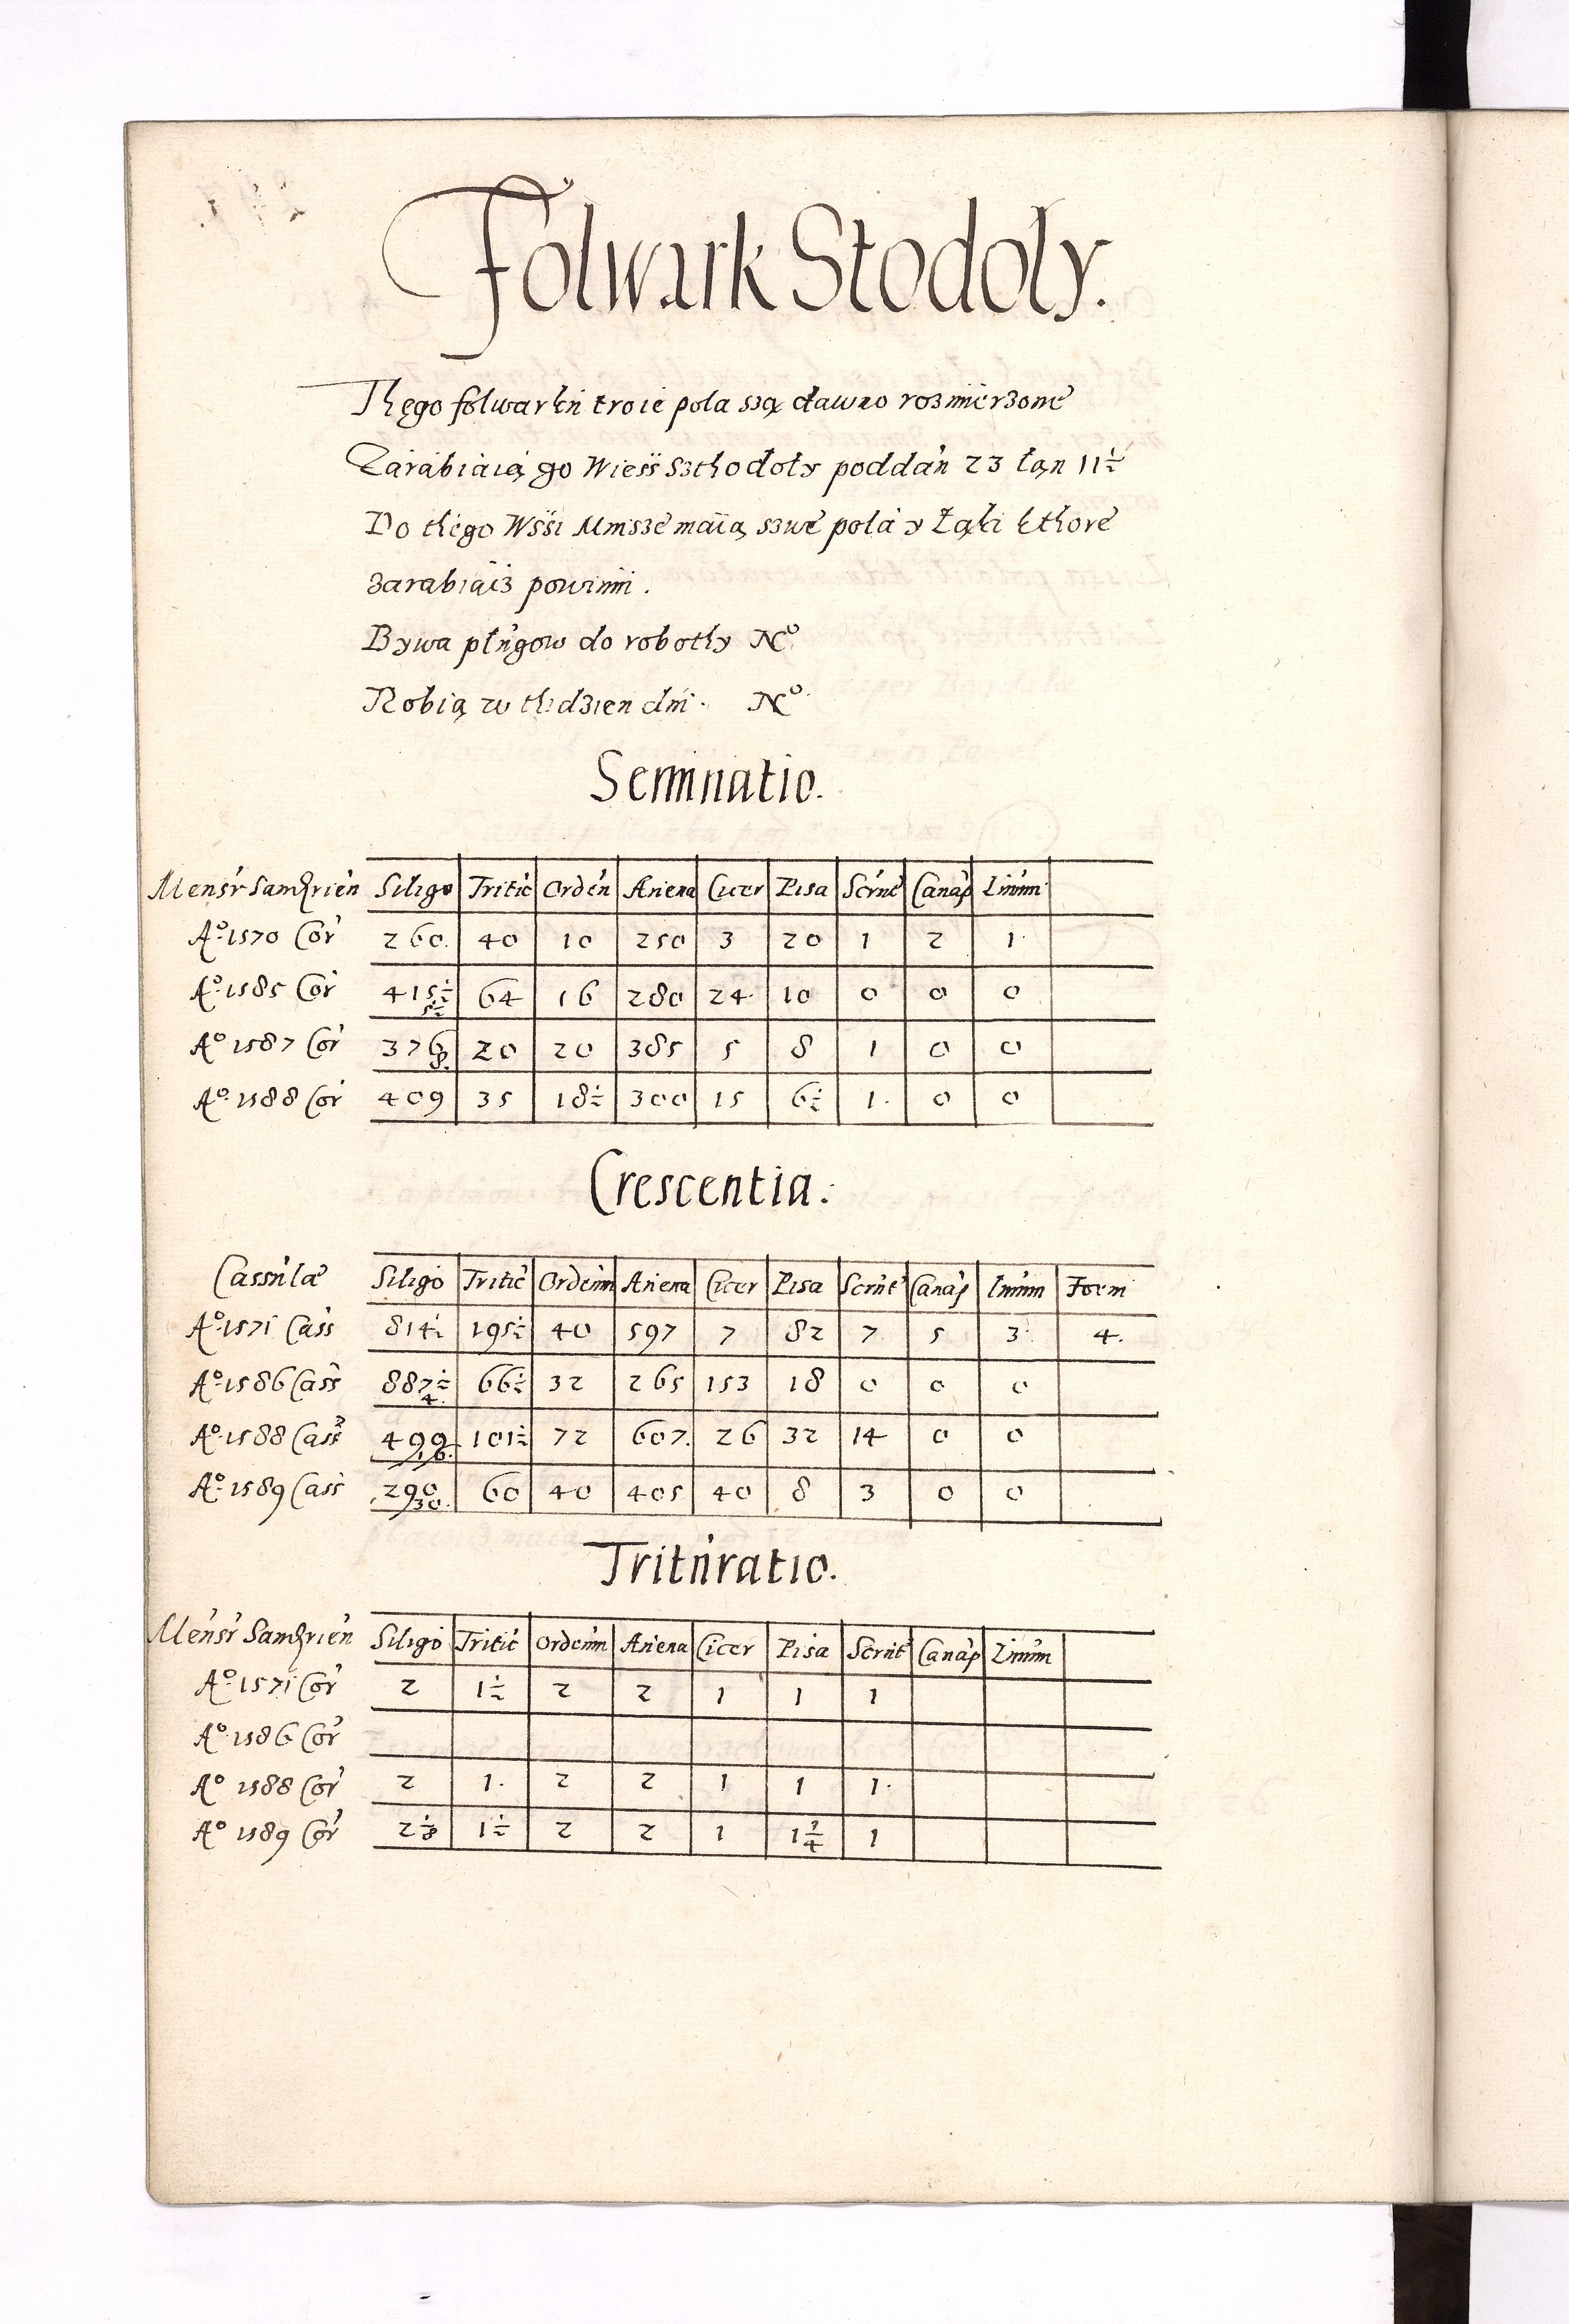 Folwark Stodoly.
Thęgo folwarku troie pola szą dawno rozmierzone
Zarabiaią go Wieś Szthodoły poddan 23 łan 11½
Do thego Wśsi Umsze maią szwe pola y Łąki kthore
zarabiaiz powinni.
Bywa pługow do robothy No
Robią w thidzien dni. No
Seminatio.
Mensr Samdrien Siligo Tritic Orden Auena Cicer Pisa Scrut Canap Linum
Ao 1570 Cor 260. 40 10 250 3 20 1 2 1.
Ao 1585 Cor 415½ 64 16 280 24. 10 0 0 0
5½
Ao 1587 Cor 376 20 20 385 5 8 1 0 0
8.
Ao 1588 Cor 409 35 18½ 300 15 6½ 1. 0 0
Crescentia.
Cassulæ Siligo Tritic Ordeum Auena Cicer Pisa Scrut Canap Linum Foeni
Ao 1571 Cass 814½ 195½ 40 597 7 82 7 5 3 4.
Ao 1586 Cass 887½ 66½ 32 265 153 18 0 0 0
4.
Ao 1588 Cass 499 101½ 72 607. 26 32 14 0 0
16.
Ao 1589 Cass 290 60 40 405 40 8 3 0 0
30.
Trituratio.
Mensr Samdrien Siligo Tritic Ordeum Auena Cicer Pisa Scrut Canap Linum
Ao 1571 Cor 2 1½ 2 2 1 1 1
Ao 1586 Cor
Ao 1588 Cor 2 1. 2 2 1 1 1.
Ao 1589 Cor 2⅛ 1½ 2 2 1 1¼ 1